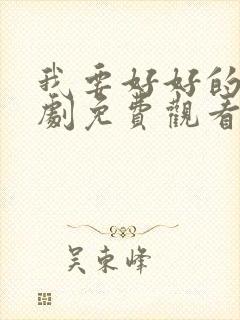 我要好好的
劇免費觀看
吴東峰